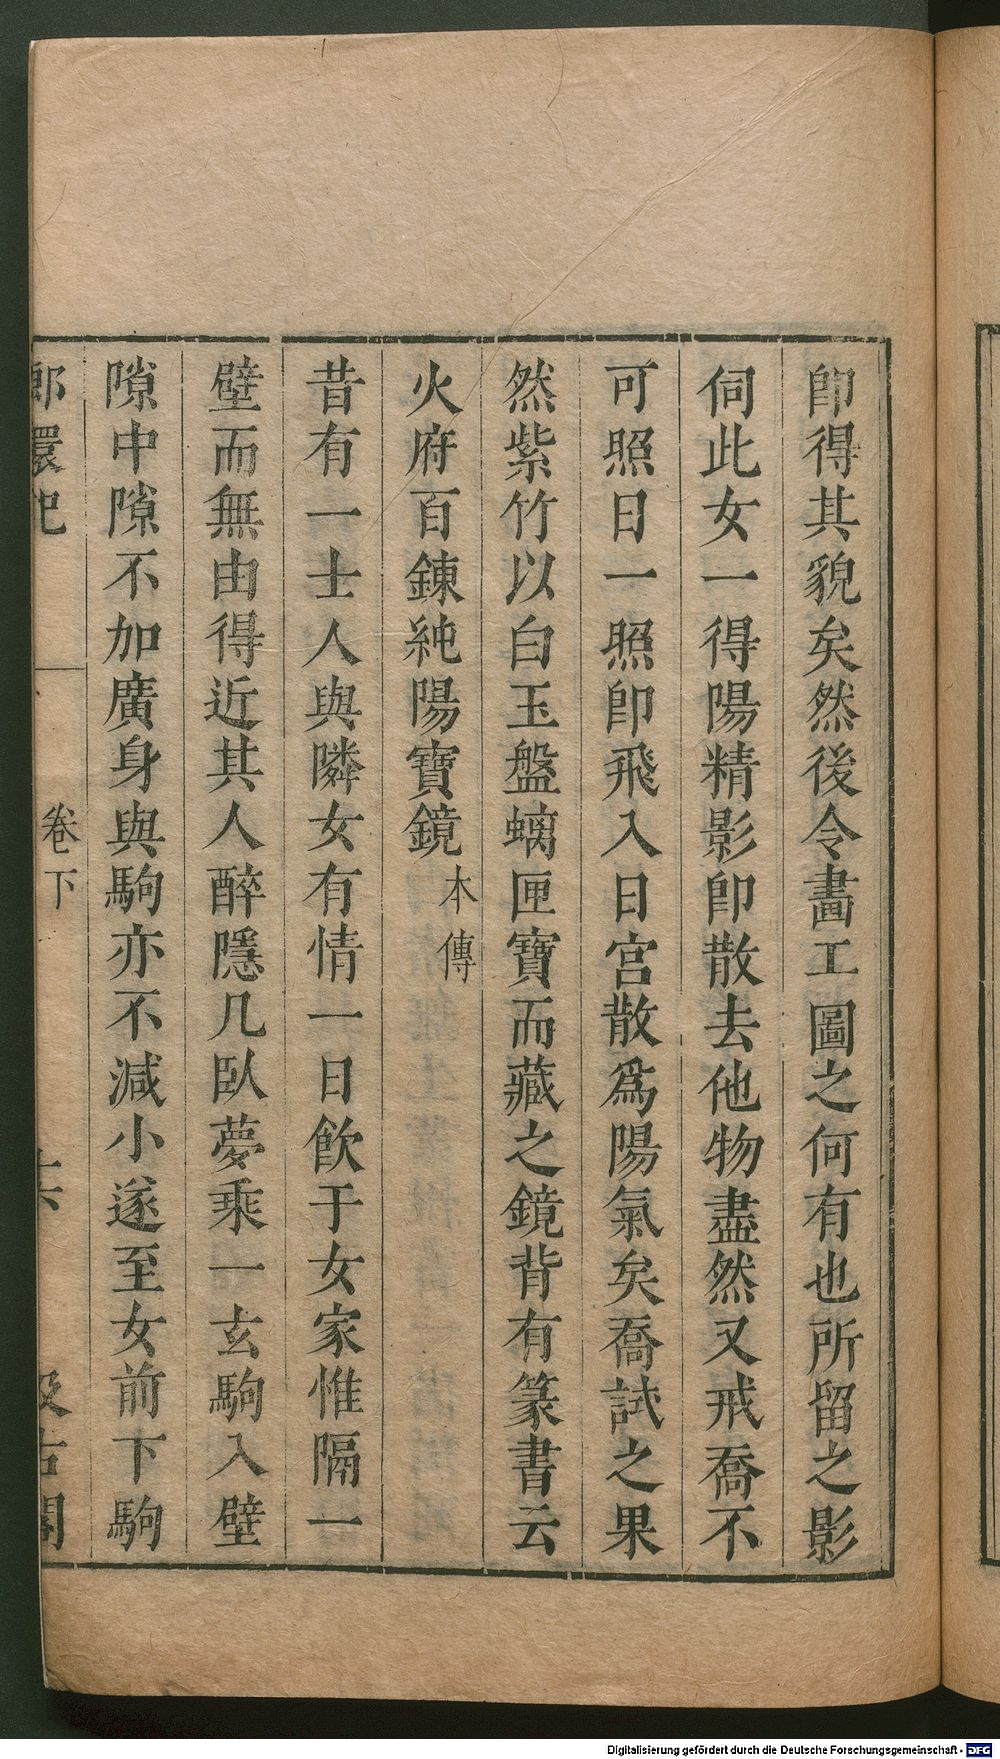 即得其貌矣然後令畵工圖之何有也所留之影
伺此女一得陽精影即散去他物盡然又戒喬不
可照日一照即飛入日宮散爲陽氣矣喬試之果
然紫竹以白玉盤螭匣寶而藏之鏡背有篆書云
火府百鍊純陽寶鏡本傳
昔有一士人與隣女有情一日飲于女家惟隔一
壁而無由得近其人醉隱几臥夢乘一玄駒入壁
隙中隙不加廣身與駒亦不減小遂至女前下駒
郎環記 卷下 汲古閣
Digitalisierung gefördert durch die Deutsche Forschungsgemeinschaft - DFG